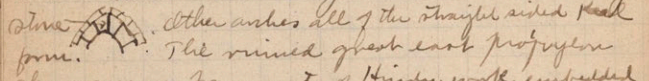 stone . Other arches all of the straight sided keel
form. The ruined great east propylon
of Hindu work embedded